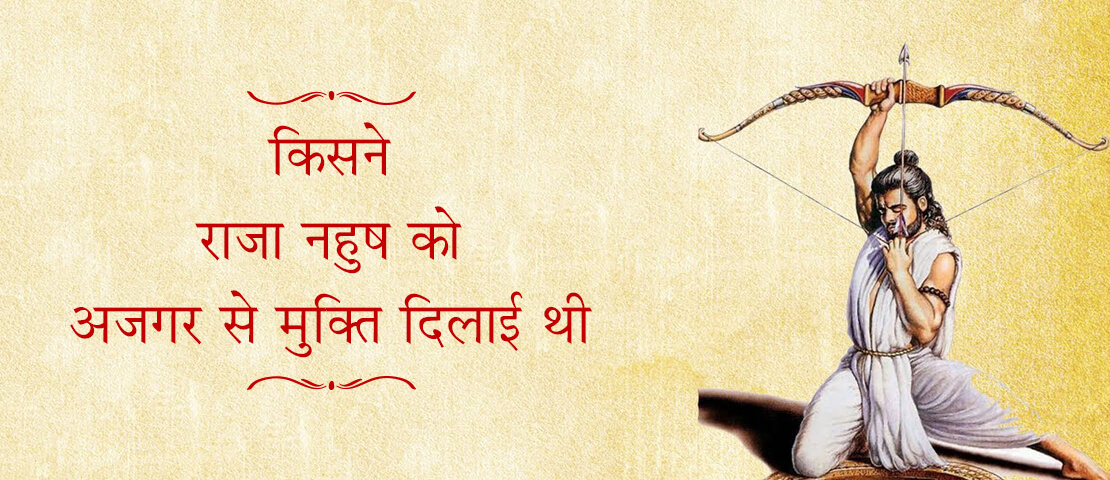 किसने
राजा नहुष को
अजगर से मुक्ति दिलाई थी